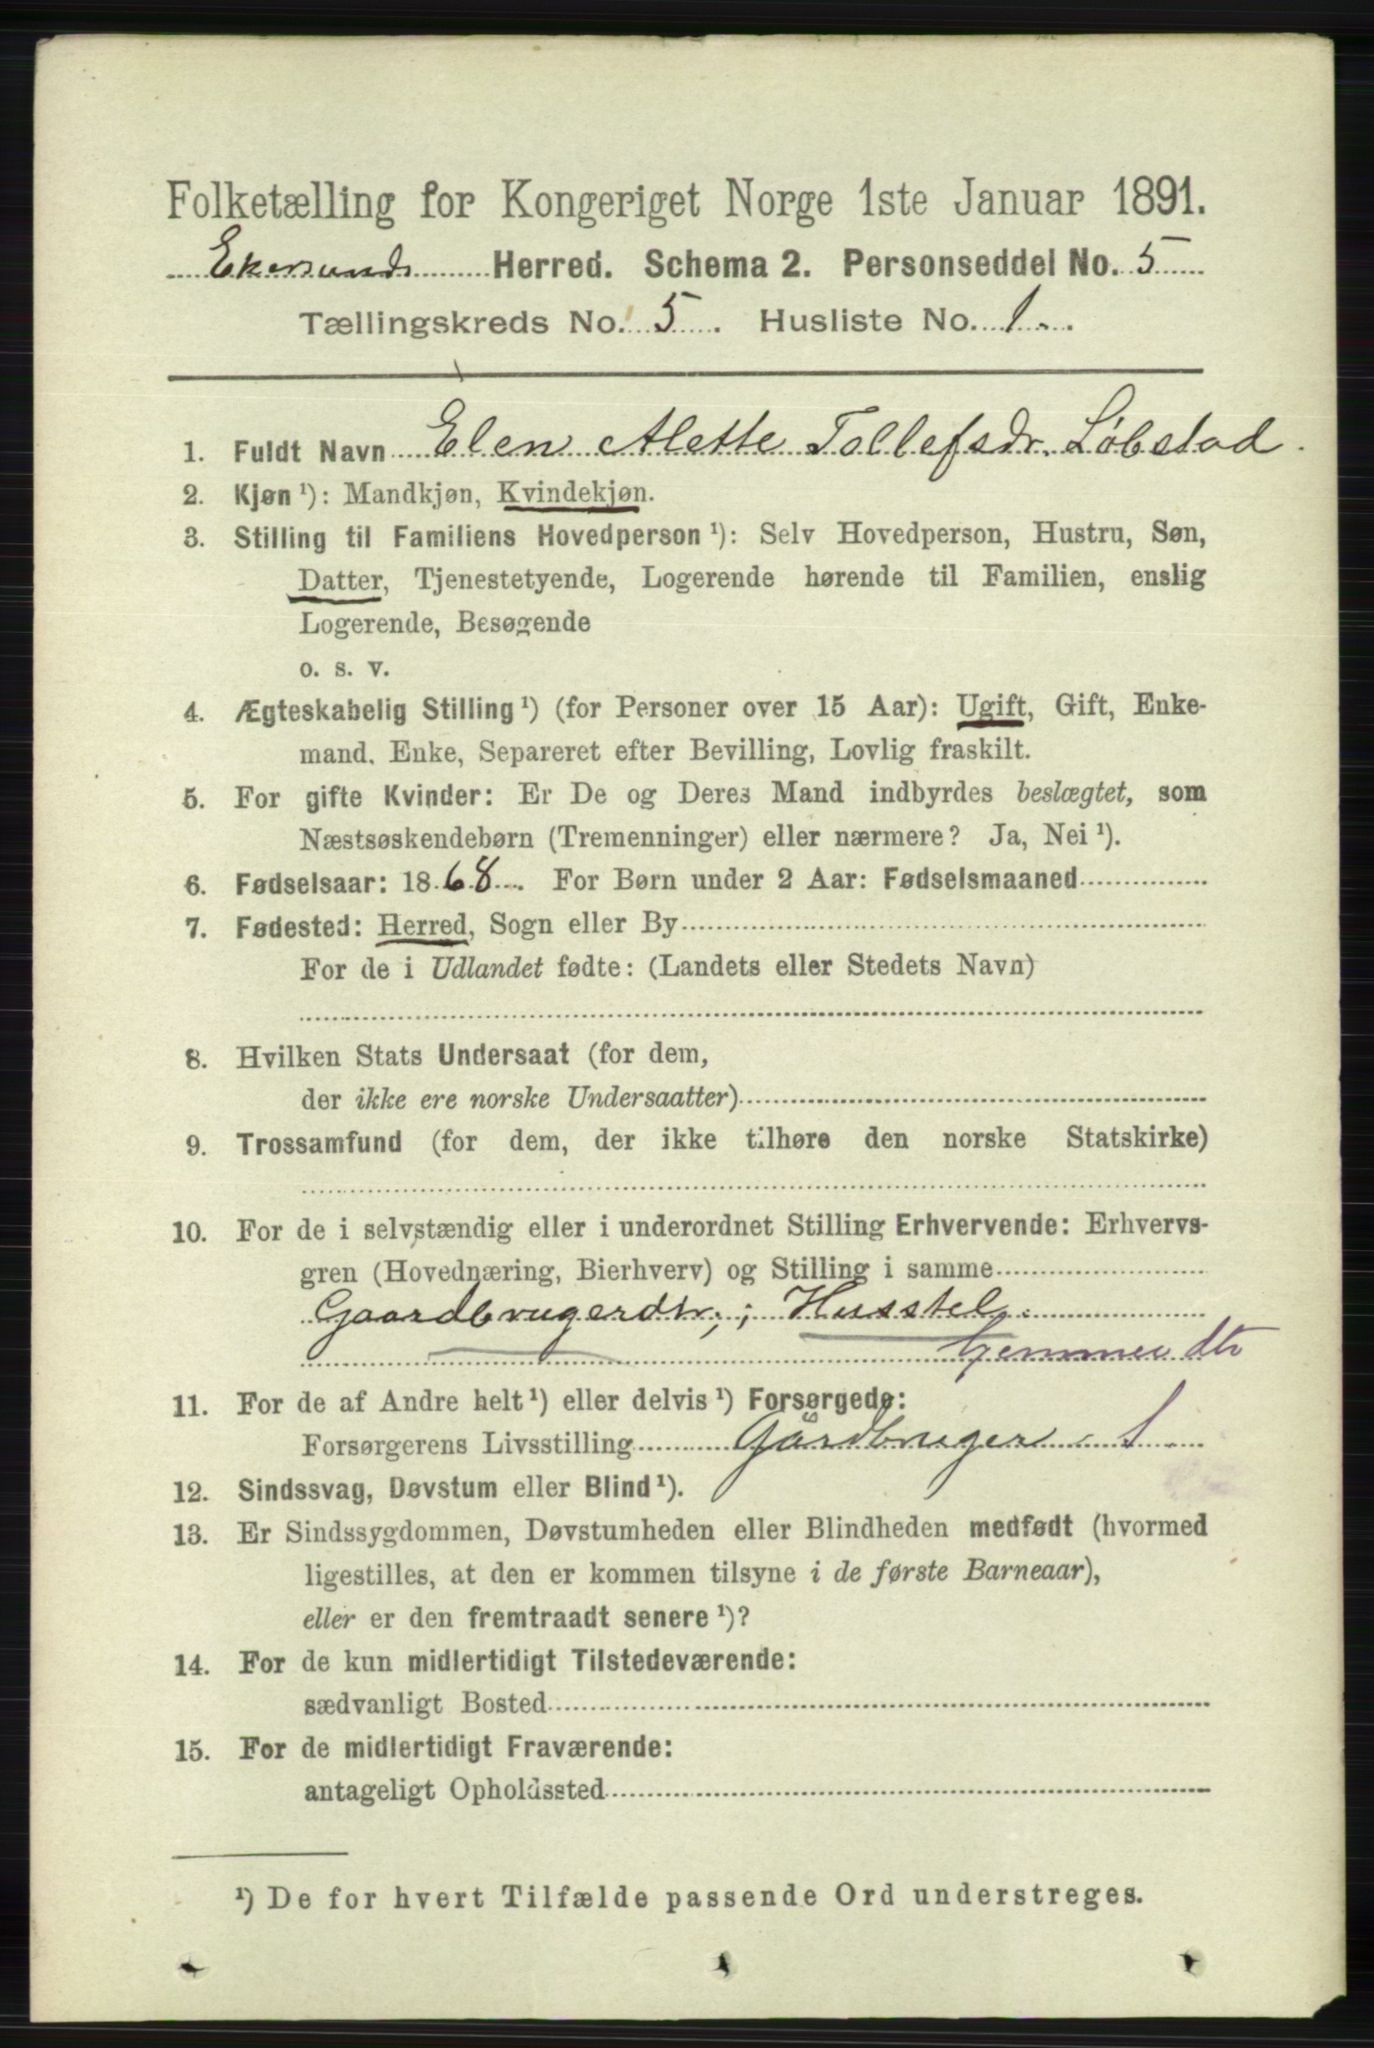 Folketælling for Kongeriget Norge 1ste Januar 1891.
Ekersunds Herred. Schema 2. Personseddel No. 5
Tællingskreds No. 5. Husliste No. 1.
1. Fuldt Navn Elen Alette Tollefsdr. Løbstad.
2. Kjøn ¹): Mandkjøn, Kvindekjøn.
3. Stilling til Familiens Hovedperson ¹): Selv Hovedperson, Hustru, Søn,
Datter, Tjenestetyende, Logerende hørende til Familien, enslig
Logerende, Besøgende
o. s. v.
4. Ægteskabelig Stilling ¹) (for Personer over 15 Aar): Ugift, Gift, Enke-
mand, Enke, Separeret efter Bevilling, Lovlig fraskilt.
5. For gifte Kvinder: Er De og Deres Mand indbyrdes beslægtet, som
Næstsøskendebørn (Tremenninger) eller nærmere? Ja, Nei ¹).
6. Fødselsaar: 1868. For Børn under 2 Aar: Fødselsmaaned
7. Fødested: Herred, Sogn eller By
For de i Udlandet fødte: (Landets eller Stedets Navn)
8. Hvilken Stats Undersaat (for dem,
der ikke ere norske Undersaatter)
9. Trossamfund (for dem, der ikke tilhøre den norske Statskirke)
10. For de i selvstændig eller i underordnet Stilling Erhvervende: Erhvervs-
gren (Hovednæring, Bierhverv) og Stilling i samme
Gaardbrugerdtr; Husstel.
hjemmev dtr
11. For de af Andre helt ¹) eller delvis ¹) Forsørgede:
Forsørgerens Livsstilling Gårdbruger S
12. Sindssvag, Døvstum eller Blind ¹).
13. Er Sindssygdommen, Døvstumheden eller Blindheden medfødt (hvormed
ligestilles, at den er kommen tilsyne i de første Barneaar),
eller er den fremtraadt senere ¹)?
14. For de kun midlertidigt Tilstedeværende:
sædvanligt Bosted
15. For de midlertidigt Fraværende:
antageligt Opholdssted
¹) De for hvert Tilfælde passende Ord understreges.